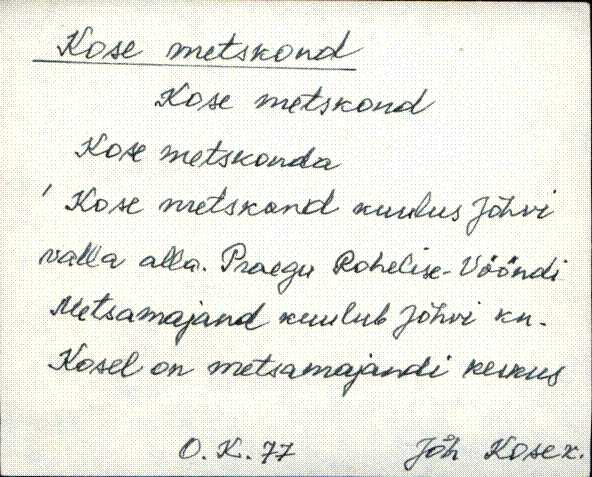 Kose metskond
Kose metskond
Kose metskonda
' Kose metskond kuulus Jõhvi
valla alla. Praegu Rohelise-Vööndi
Metsamajand kuulub Jõhvi kn.
Kosel on metsamajandi keskus
O. K. 77 Jõh Kose k.